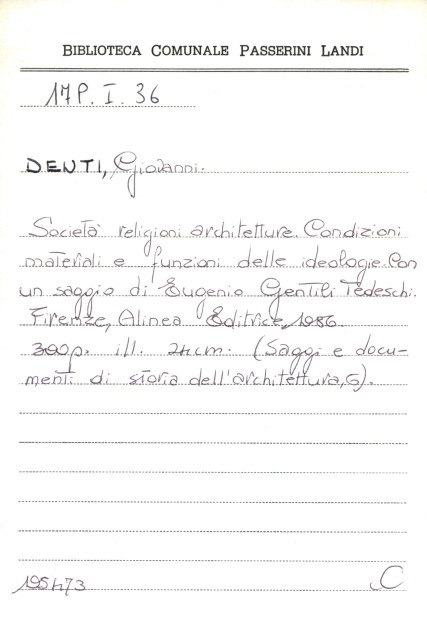 BIBLIOTECA COMUNALE PASSERINI LANDI
17P. I. 36
DENTI, Giovanni.
Società religioni architetture. Condizioni
materiali e funzioni delle ideologie. Con
un saggio di Eugenio Gentili Tedeschi.
Firenze, Alinea Editrice, 1986.
300p. ill. 24cm. (Saggi e docu-
menti di storia dell'architettura, 6).
195473 C